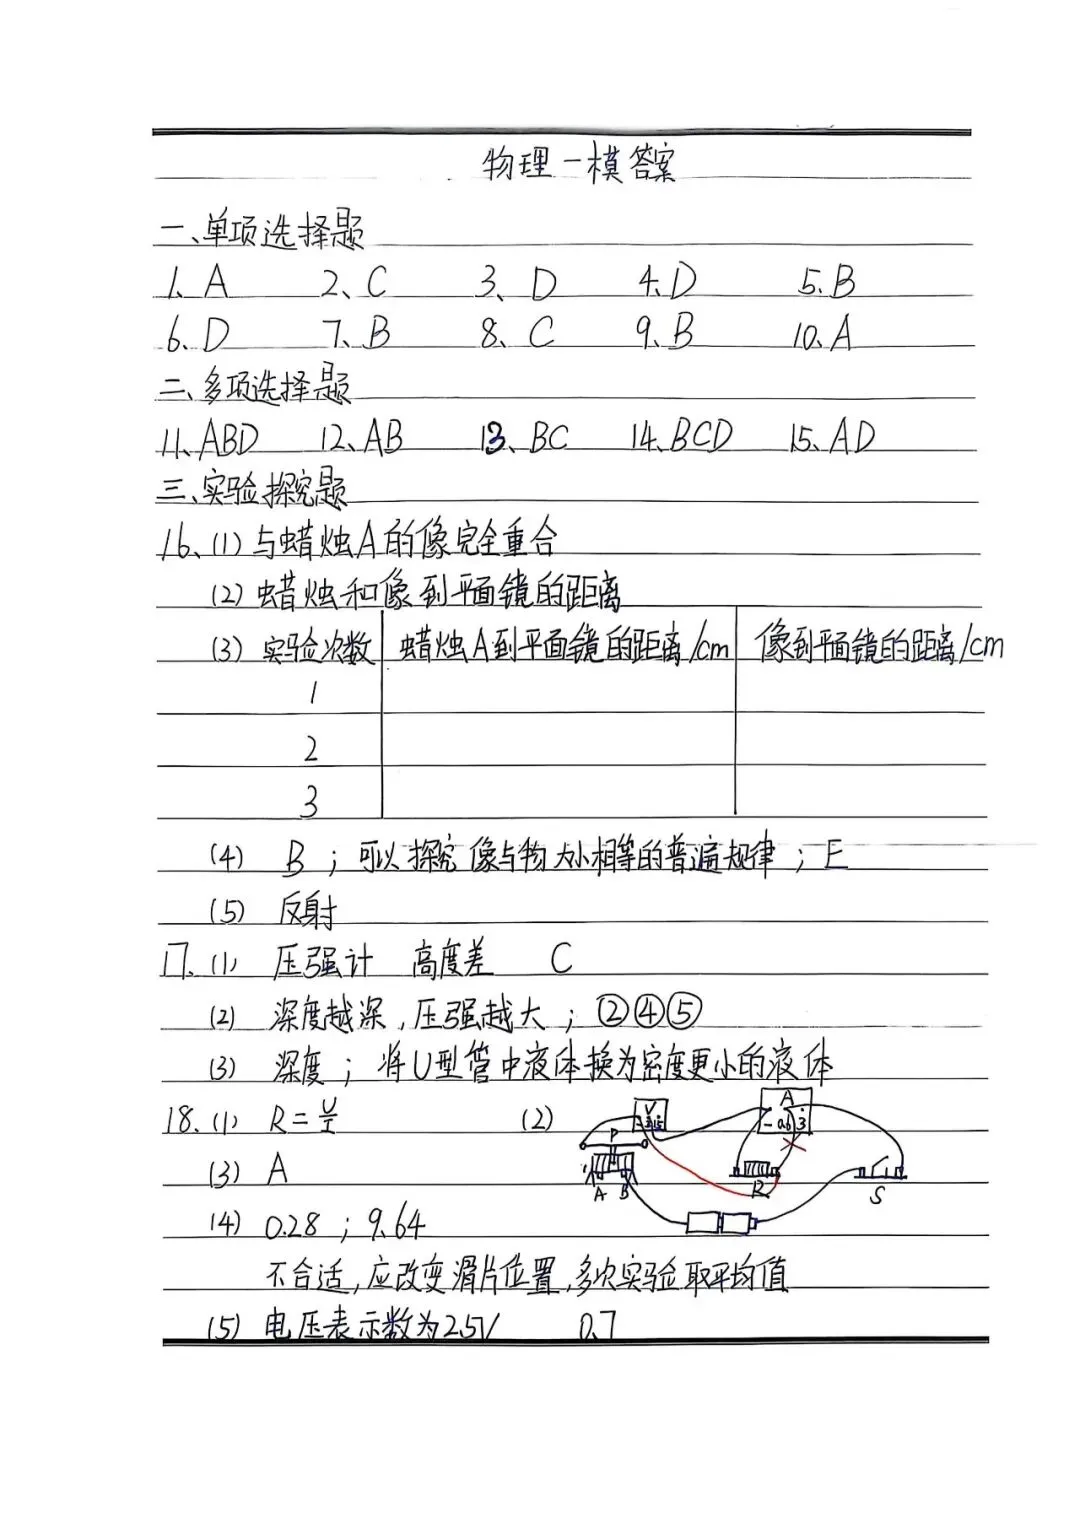 物理一模答案
一、单项选择题
1、A 2、C 3、D 4、D 5、B
6、D 7、B 8、C 9、B 10、A
二、多项选择题
11、ABD 12、AB 13、BC 14、BCD 15、AD
三、实验探究题
16、(1) 与蜡烛A的像完全重合
(2) 蜡烛和像到平面镜的距离
(3) 实验次数 蜡烛A到平面镜的距离/cm 像到平面镜的距离/cm
1
2
3
(4) B ; 可以探究像与物大小相等的普遍规律 ; E
(5) 反射
17、(1) 压强计 高度差 C
(2) 深度越深,压强越大 ; ②④⑤
(3) 深度 ; 将U型管中液体换为密度更小的液体
18、(1) R=U/I (2)
V
A
- 0.6 3
P
A B
R
S
(3) A
(4) 0.28 ; 9.64
不合适,应改变滑片位置,多次实验取平均值
(5) 电压表示数为2.5V 0.7